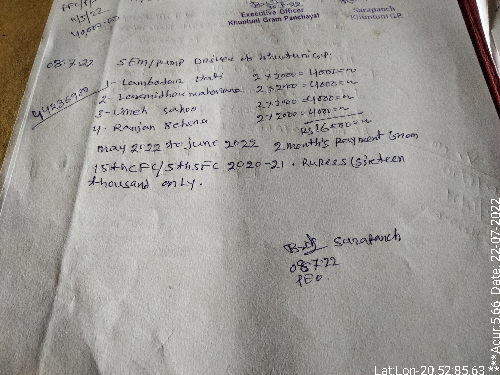 11/3/22
30.7.22
Executive Officer
Khuntuni Gram Panchayat
Sarapanch
Khuntuni G.P.
08.7.22 SEM/pump Driver at khuntuni gp.
1- Lambodar 2 x 2000 = 4000=00
2- Laxmidhar maharana 2 x 2000 = 4000=00
3- Umesh sahoo 2 x 2000 = 4000=00
4. Ranjan Behera 2 x 2000 = 4000=00
Rs 16000=00
may 2022 to june 2022 2 month's payment from
15th CFC/5th SFC 2020-21. Rupess (sixteen
thousand only.
Sarapanch
08.7.22
PEO
***Acur:5.66 Date, 22-07-2022
Lat:Lon-20.52:85.63